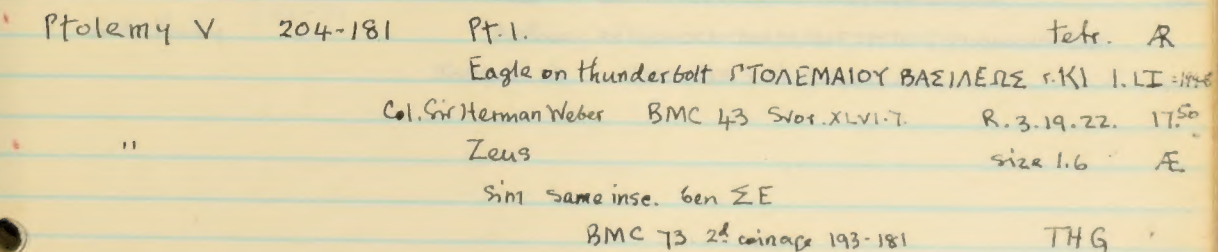 Ptolemy V 204-181 Pt. 1. tetr. AR
Eagle on thunderbolt ΠΤΟΛΕΜΑΙΟΥ ΒΑΣΙΛΕΩΣ r. ΚΙ l. LI
Col. Sir Herman Weber BMC 43 Svor. XLVI.7. R. 3.19.22. 17.50
" Zeus size 1.6 Æ
Sim same insc. ben ΣΕ
BMC 73 2d coinage 193-181 THG